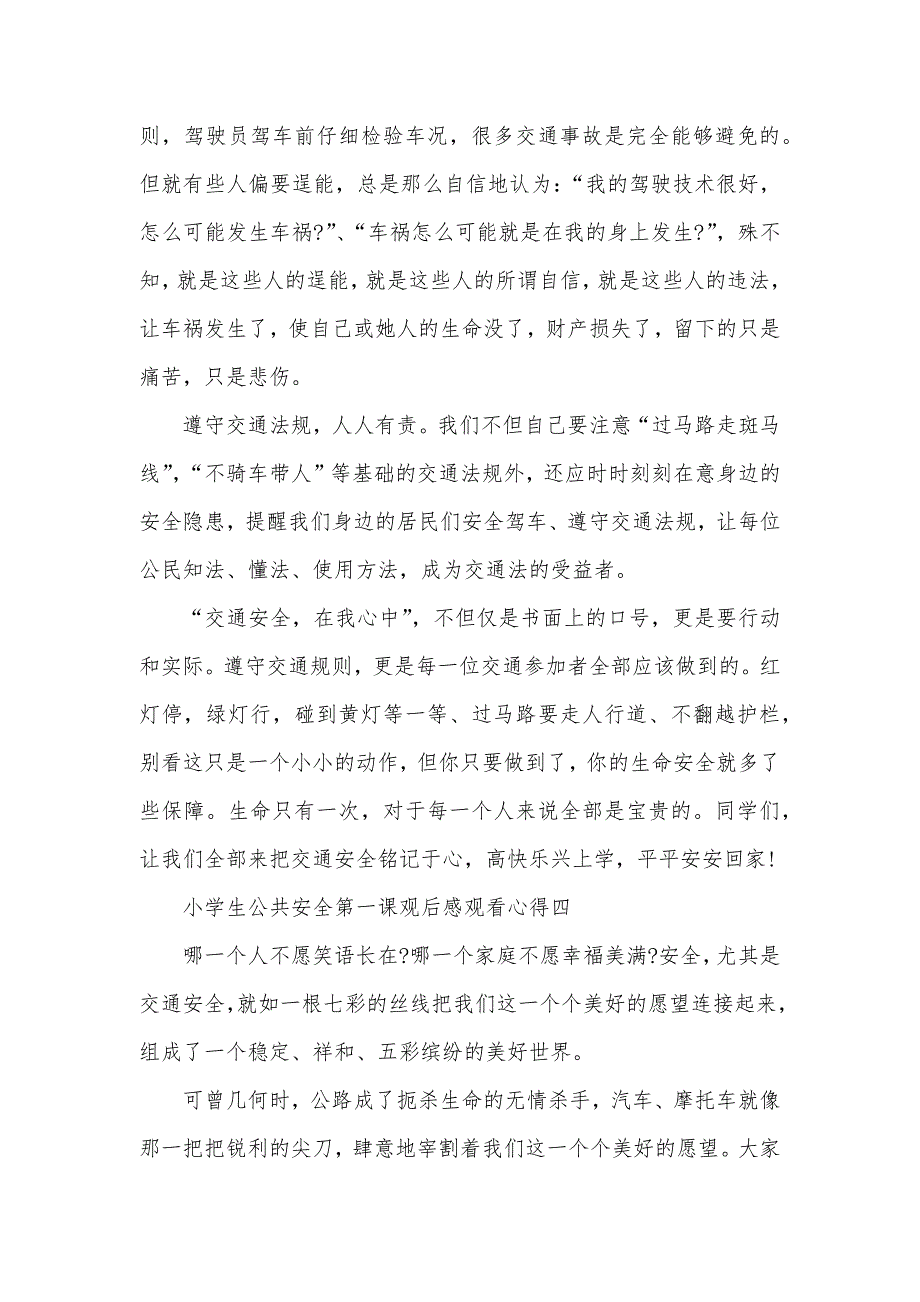 则，驾驶员驾车前仔细检验车况，很多交通事故是完全能够避免的。
但就有些人偏要逞能，总是那么自信地认为：“我的驾驶技术很好，
怎么可能发生车祸?”、“车祸怎么可能就是在我的身上发生?”，殊不
知，就是这些人的逞能，就是这些人的所谓自信，就是这些人的违法，
让车祸发生了，使自己或她人的生命没了，财产损失了，留下的只是
痛苦，只是悲伤。
遵守交通法规，人人有责。我们不但自己要注意“过马路走斑马
线”，“不骑车带人”等基础的交通法规外，还应时时刻刻在意身边的
安全隐患，提醒我们身边的居民们安全驾车、遵守交通法规，让每位
公民知法、懂法、使用方法，成为交通法的受益者。
“交通安全，在我心中”，不但仅是书面上的口号，更是要行动
和实际。遵守交通规则，更是每一位交通参加者全部应该做到的。红
灯停，绿灯行，碰到黄灯等一等、过马路要走人行道、不翻越护栏，
别看这只是一个小小的动作，但你只要做到了，你的生命安全就多了
些保障。生命只有一次，对于每一个人来说全部是宝贵的。同学们，
让我们全部来把交通安全铭记于心，高快乐兴上学，平平安安回家!
小学生公共安全第一课观后感观看心得四
哪一个人不愿笑语长在?哪一个家庭不愿幸福美满?安全，尤其是
交通安全，就如一根七彩的丝线把我们这一个个美好的愿望连接起来，
组成了一个稳定、祥和、五彩缤纷的美好世界。
可曾几何时，公路成了扼杀生命的无情杀手，汽车、摩托车就像
那一把把锐利的尖刀，肆意地宰割着我们这一个个美好的愿望。大家